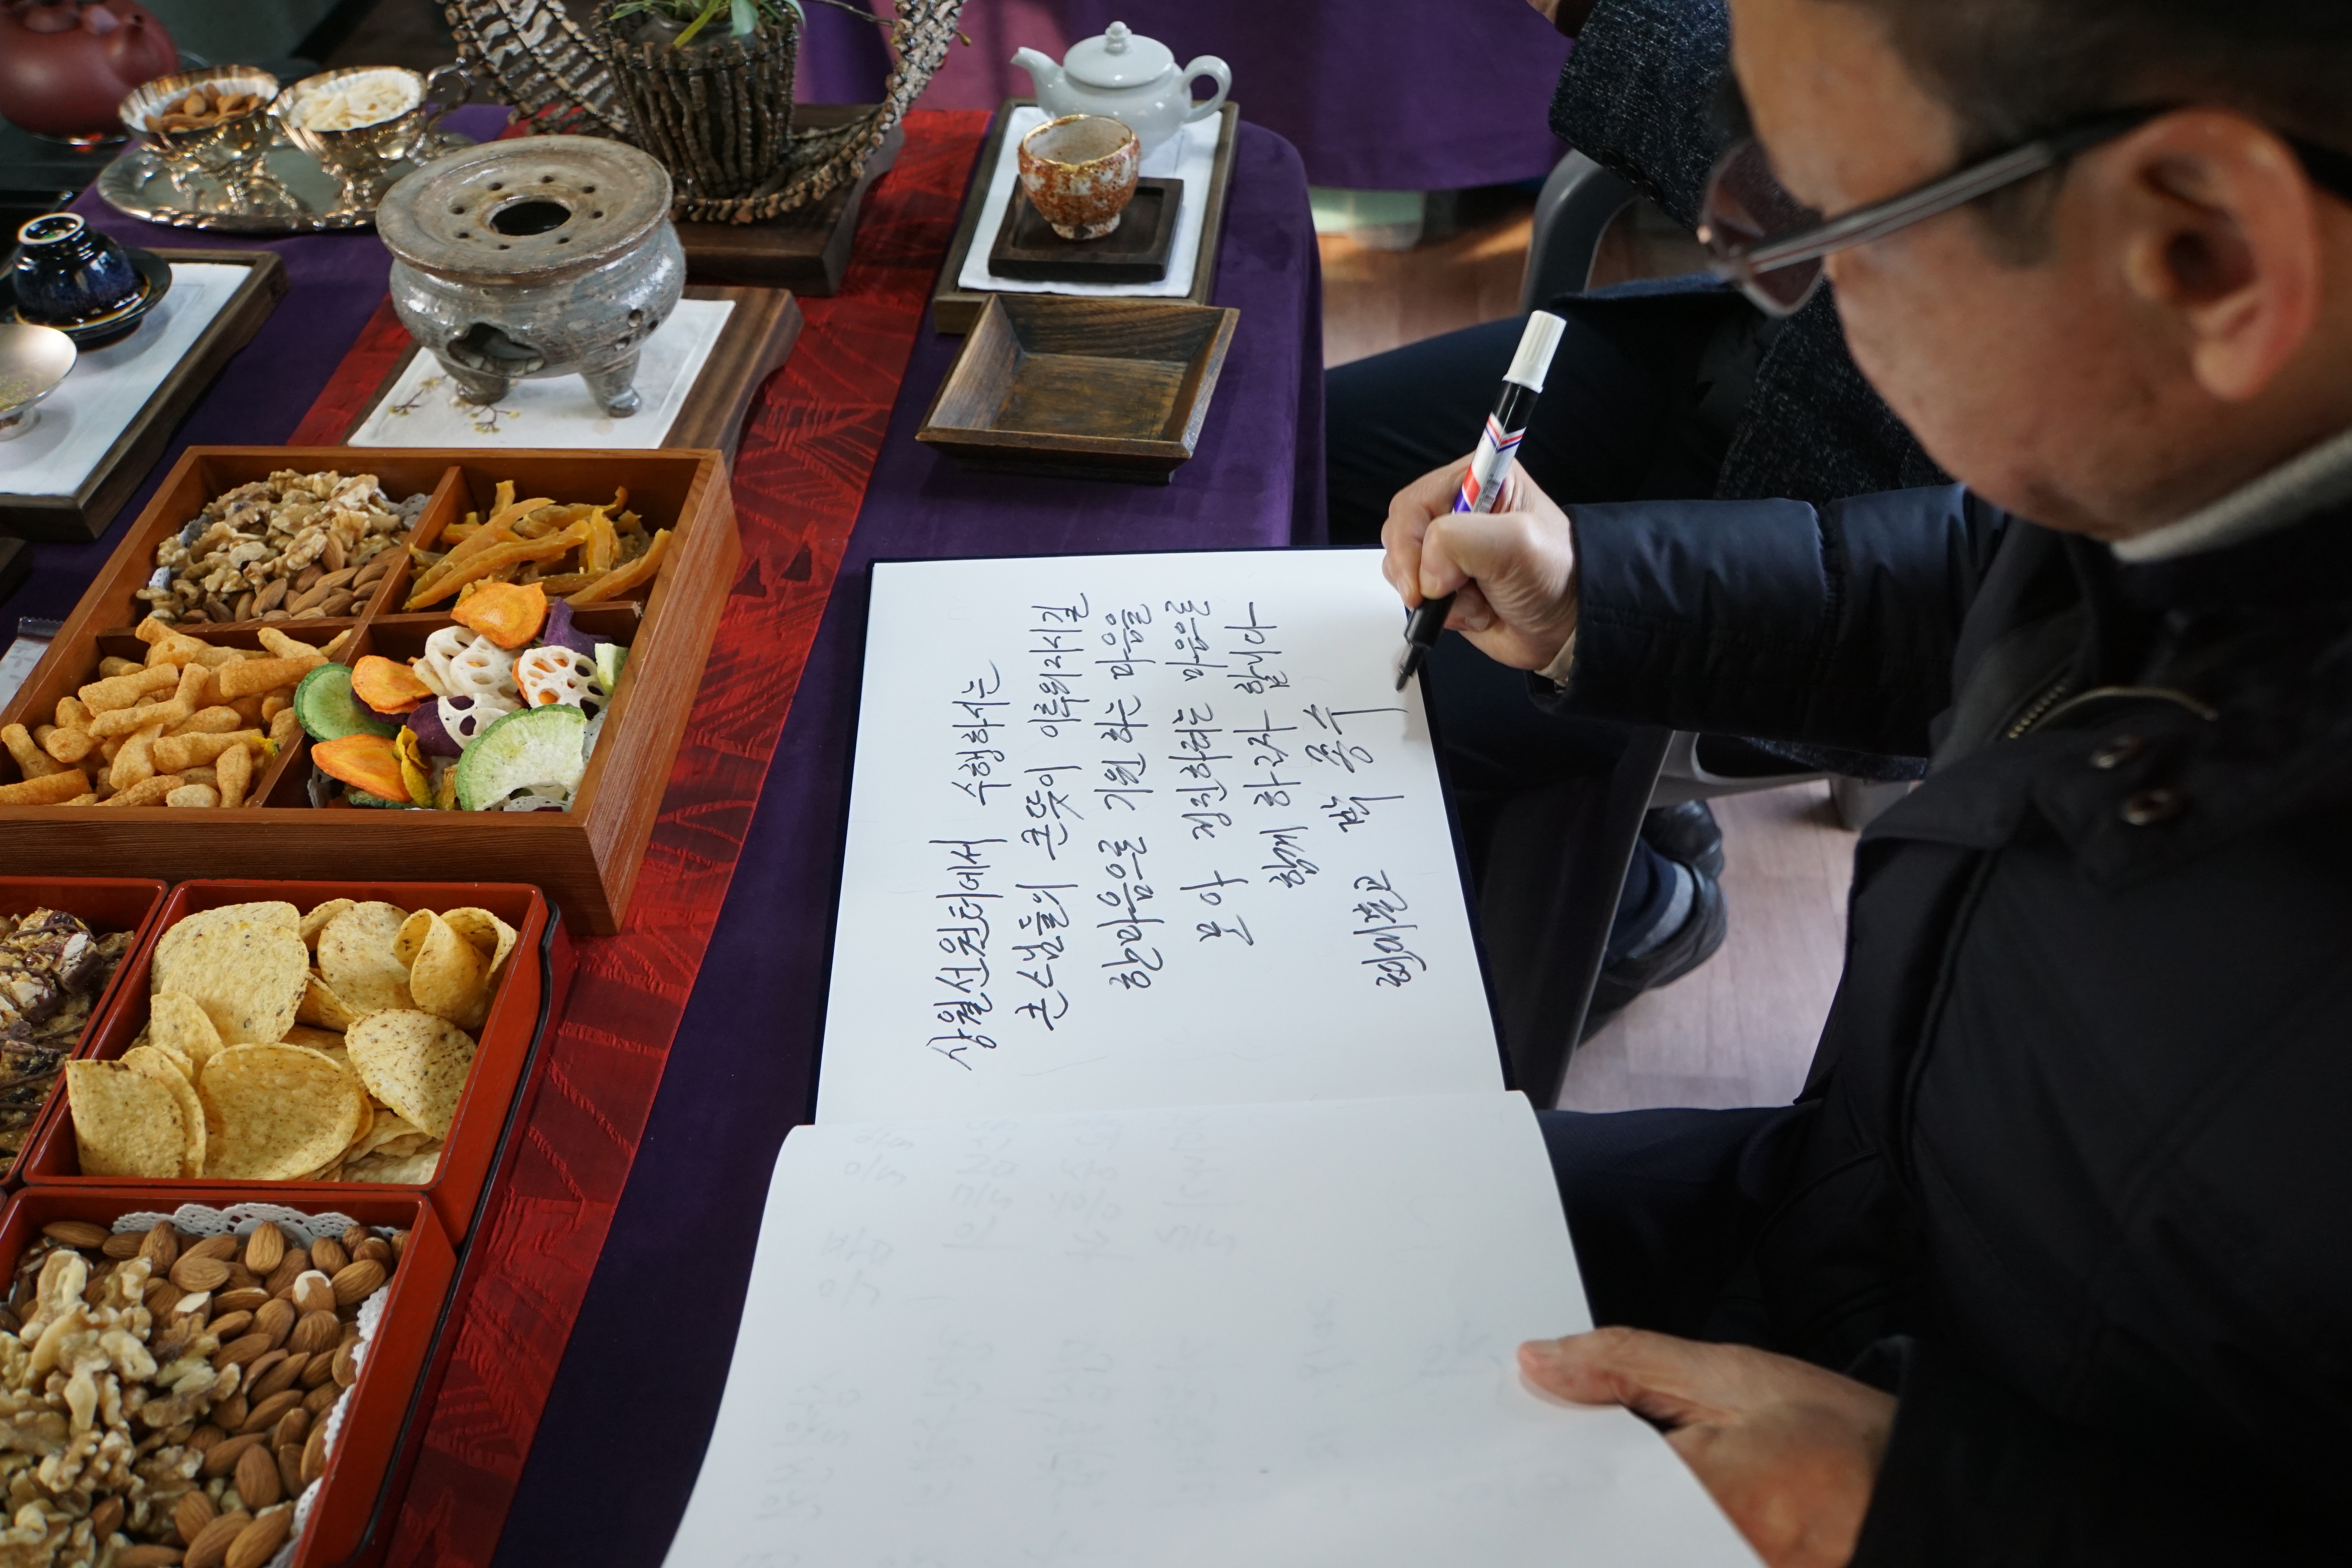 상월선원터에서 수행하시는
큰스님들의 큰뜻이 이루위지시길
한마음으로 기원하는 마음을
모아 정진하려는 마음을
함께 하고자 합니다
박 종 수